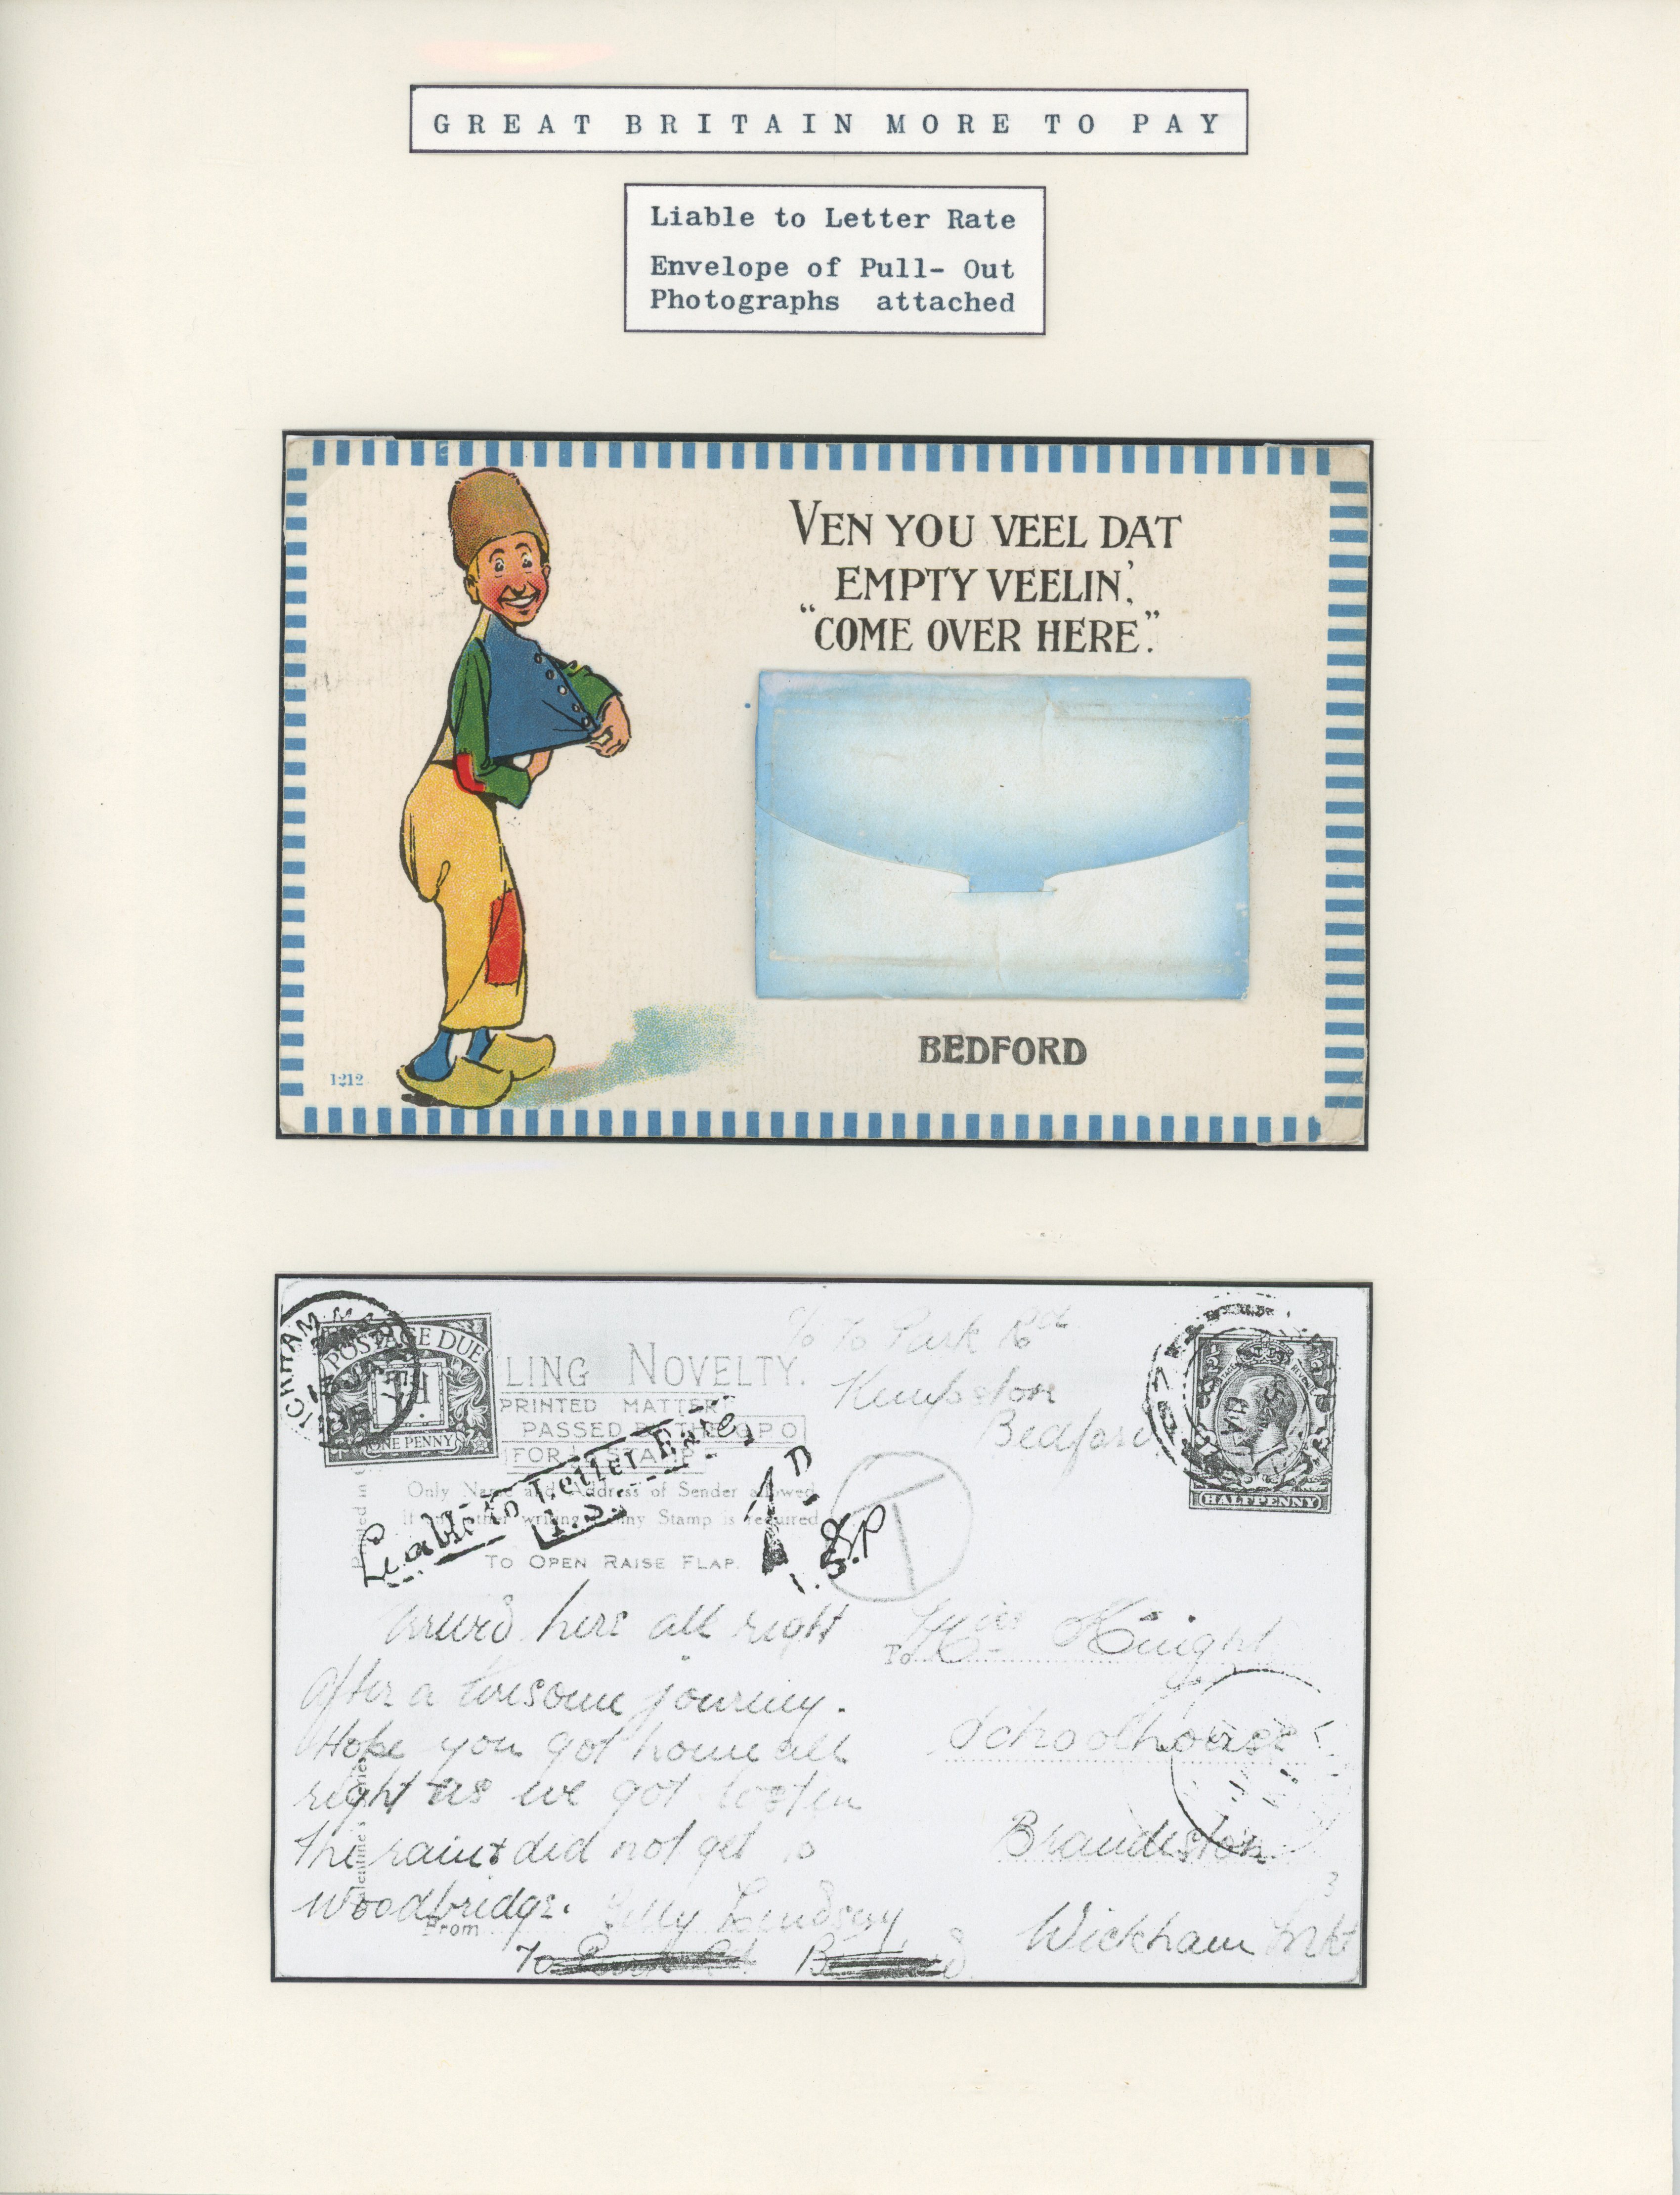 GREAT BRITAIN MORE TO PAY
Liable to Letter Rate
Envelope of Pull- Out
Photographs attached
VEN YOU VEEL DAT
EMPTY VEELIN,'
"COME OVER HERE."
BEDFORD
1212
POSTAGE DUE
1d
ONE PENNY
LING NOVELTY.
PRINTED MATTER
PASSED BY THE G.P.O
FOR ½ STAMP
Only Name and Address of Sender allowed
If any other writing Penny Stamp is required
TO OPEN RAISE FLAP.
Liable to Letter Rate,
I.S.
1D
T
70 Park Rd
Kempston
Bedford
HALFPENNY
arrived here all right
after a tiresome journey.
Hope you got home all
right as we got wet in
the rain & did not get to
Woodbridge.
From Lindsay
70 Park Rd.
To Miss Knight
Schoolhouse
Brandeston
Wickham Mkt